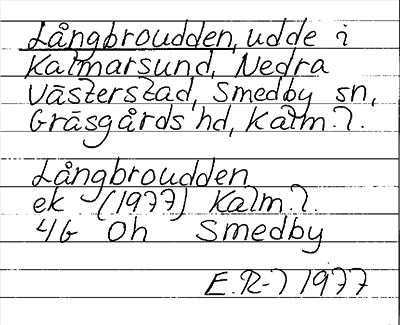 Långbroudden, udde i
Kalmarsund, Nedra
Västerstad, Smedby sn,
Gräsgårds hd, Kalm. l.
Långbroudden
ek (1977) Kalm. l.
4G Oh Smedby
E. R-7 1977